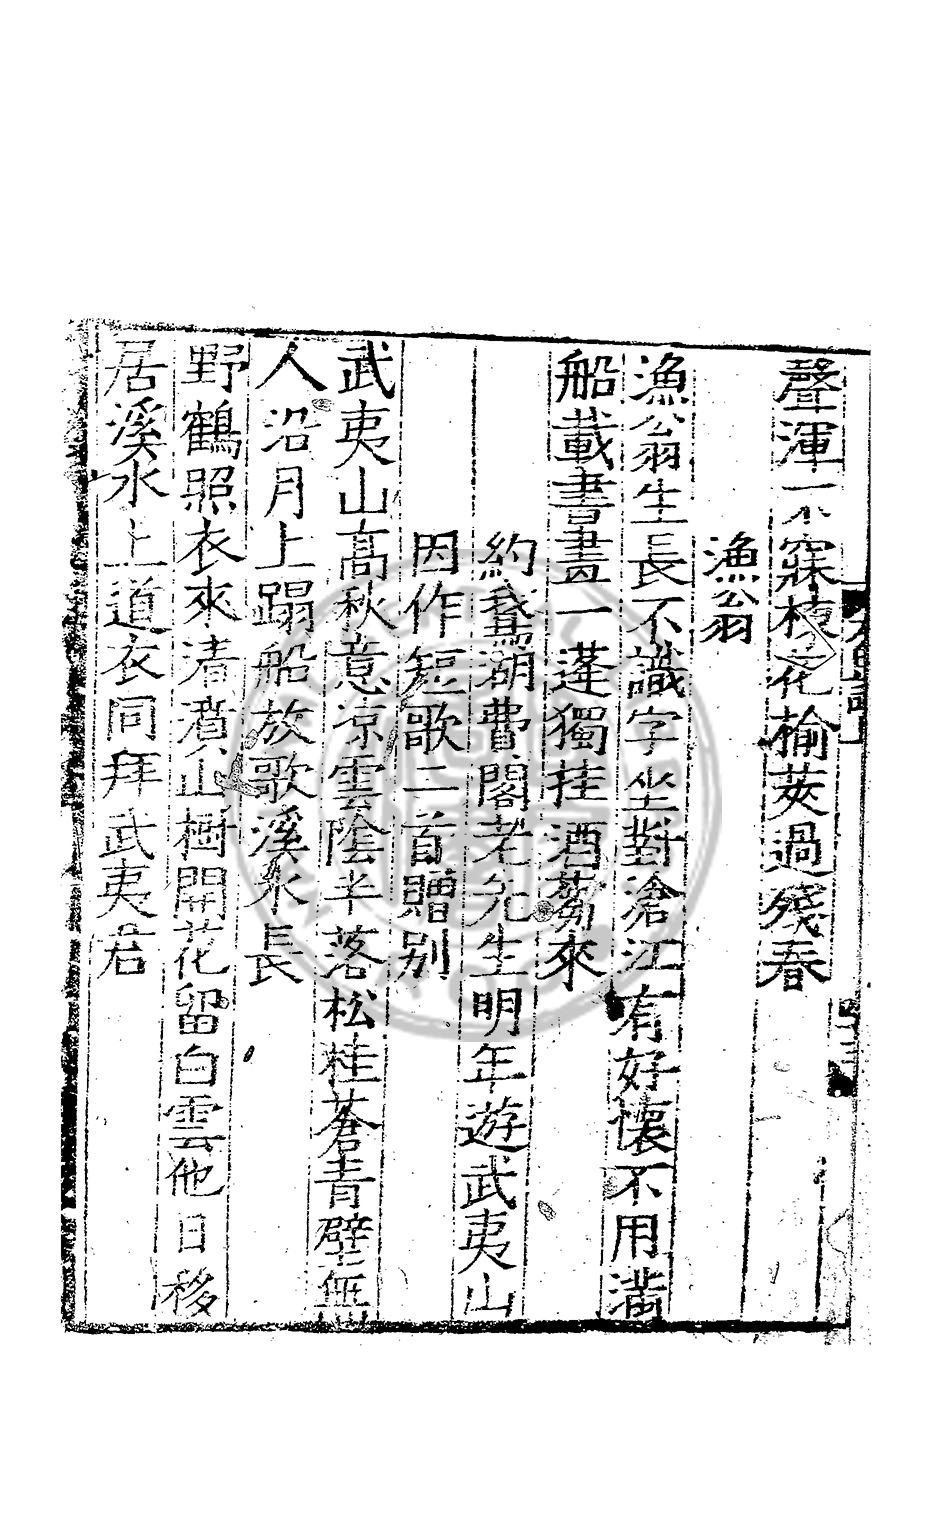 聲渾不寐枝花榆莢過殘春
漁翁
漁翁生長不識字坐對滄江有好懷不用滿
船載書畫一蓬獨挂酒蒭來
約鵞湖費閣老先生明年遊武夷山
因作短歌二首贈别
武夷山高秋意凉雲陰半落松桂蒼青壁無
人沿月上蹋船放歌溪水長
野鶴照衣來清瀆山樹開花留白雲他日移
居溪水上道衣同拜武夷君